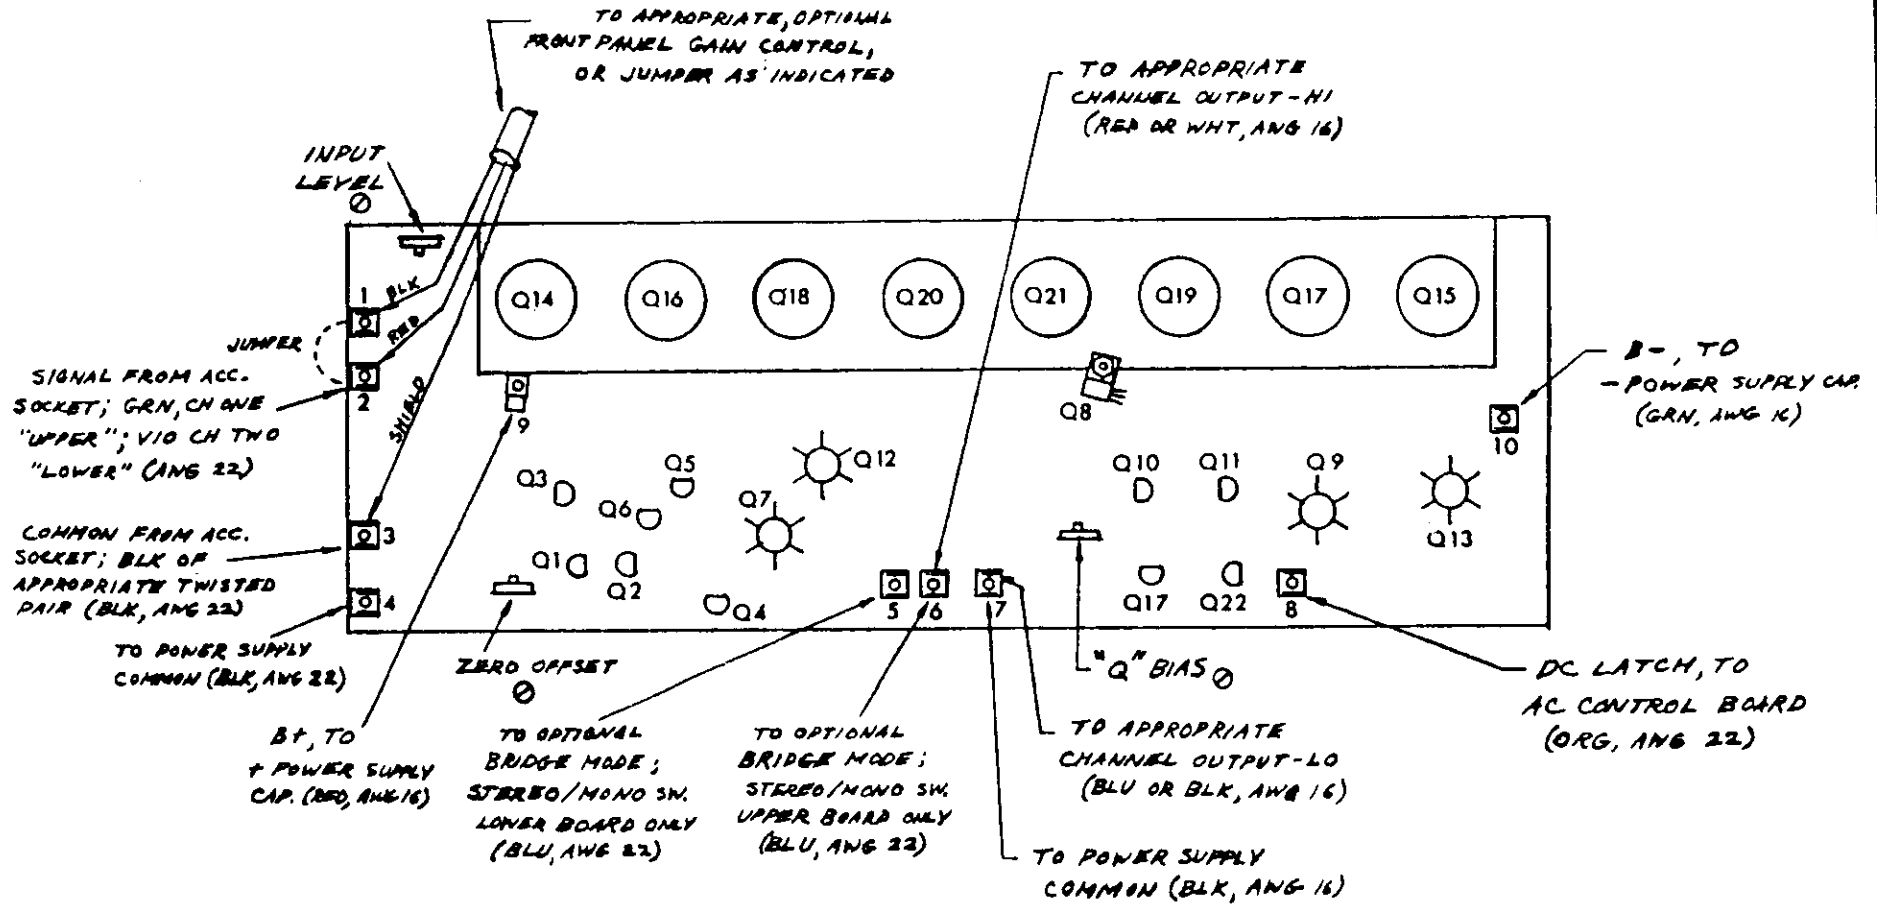 TO APPROPRIATE, OPTIONAL
FRONT PANEL GAIN CONTROL,
OR JUMPER AS INDICATED
TO APPROPRIATE
CHANNEL OUTPUT-HI
(RED OR WHT, AWG 16)
INPUT
LEVEL
1
BLK
RED
JUMPER
2
SHIELD
SIGNAL FROM ACC.
SOCKET; GRN, CH ONE
"UPPER"; VIO CH TWO
"LOWER" (AWG 22)
COMMON FROM ACC.
SOCKET; BLK OF
APPROPRIATE TWISTED
PAIR (BLK, AWG 22)
3
4
TO POWER SUPPLY
COMMON (BLK, AWG 22)
Q14
Q16
Q18
Q20
Q21
Q19
Q17
Q15
9
Q8
B-, TO
- POWER SUPPLY CAP.
(GRN, AWG 16)
10
Q3
Q5
Q12
Q6
Q7
Q10
Q11
Q9
Q13
Q1
Q2
Q4
5
6
7
Q17
Q22
8
ZERO OFFSET
"Q" BIAS
DC LATCH, TO
AC CONTROL BOARD
(ORG, AWG 22)
B+, TO
+ POWER SUPPLY
CAP. (RED, AWG 16)
TO OPTIONAL
BRIDGE MODE;
STEREO/MONO SW.
LOWER BOARD ONLY
(BLU, AWG 22)
TO OPTIONAL
BRIDGE MODE;
STEREO/MONO SW.
UPPER BOARD ONLY
(BLU, AWG 22)
TO APPROPRIATE
CHANNEL OUTPUT-LO
(BLU OR BLK, AWG 16)
TO POWER SUPPLY
COMMON (BLK, AWG 16)